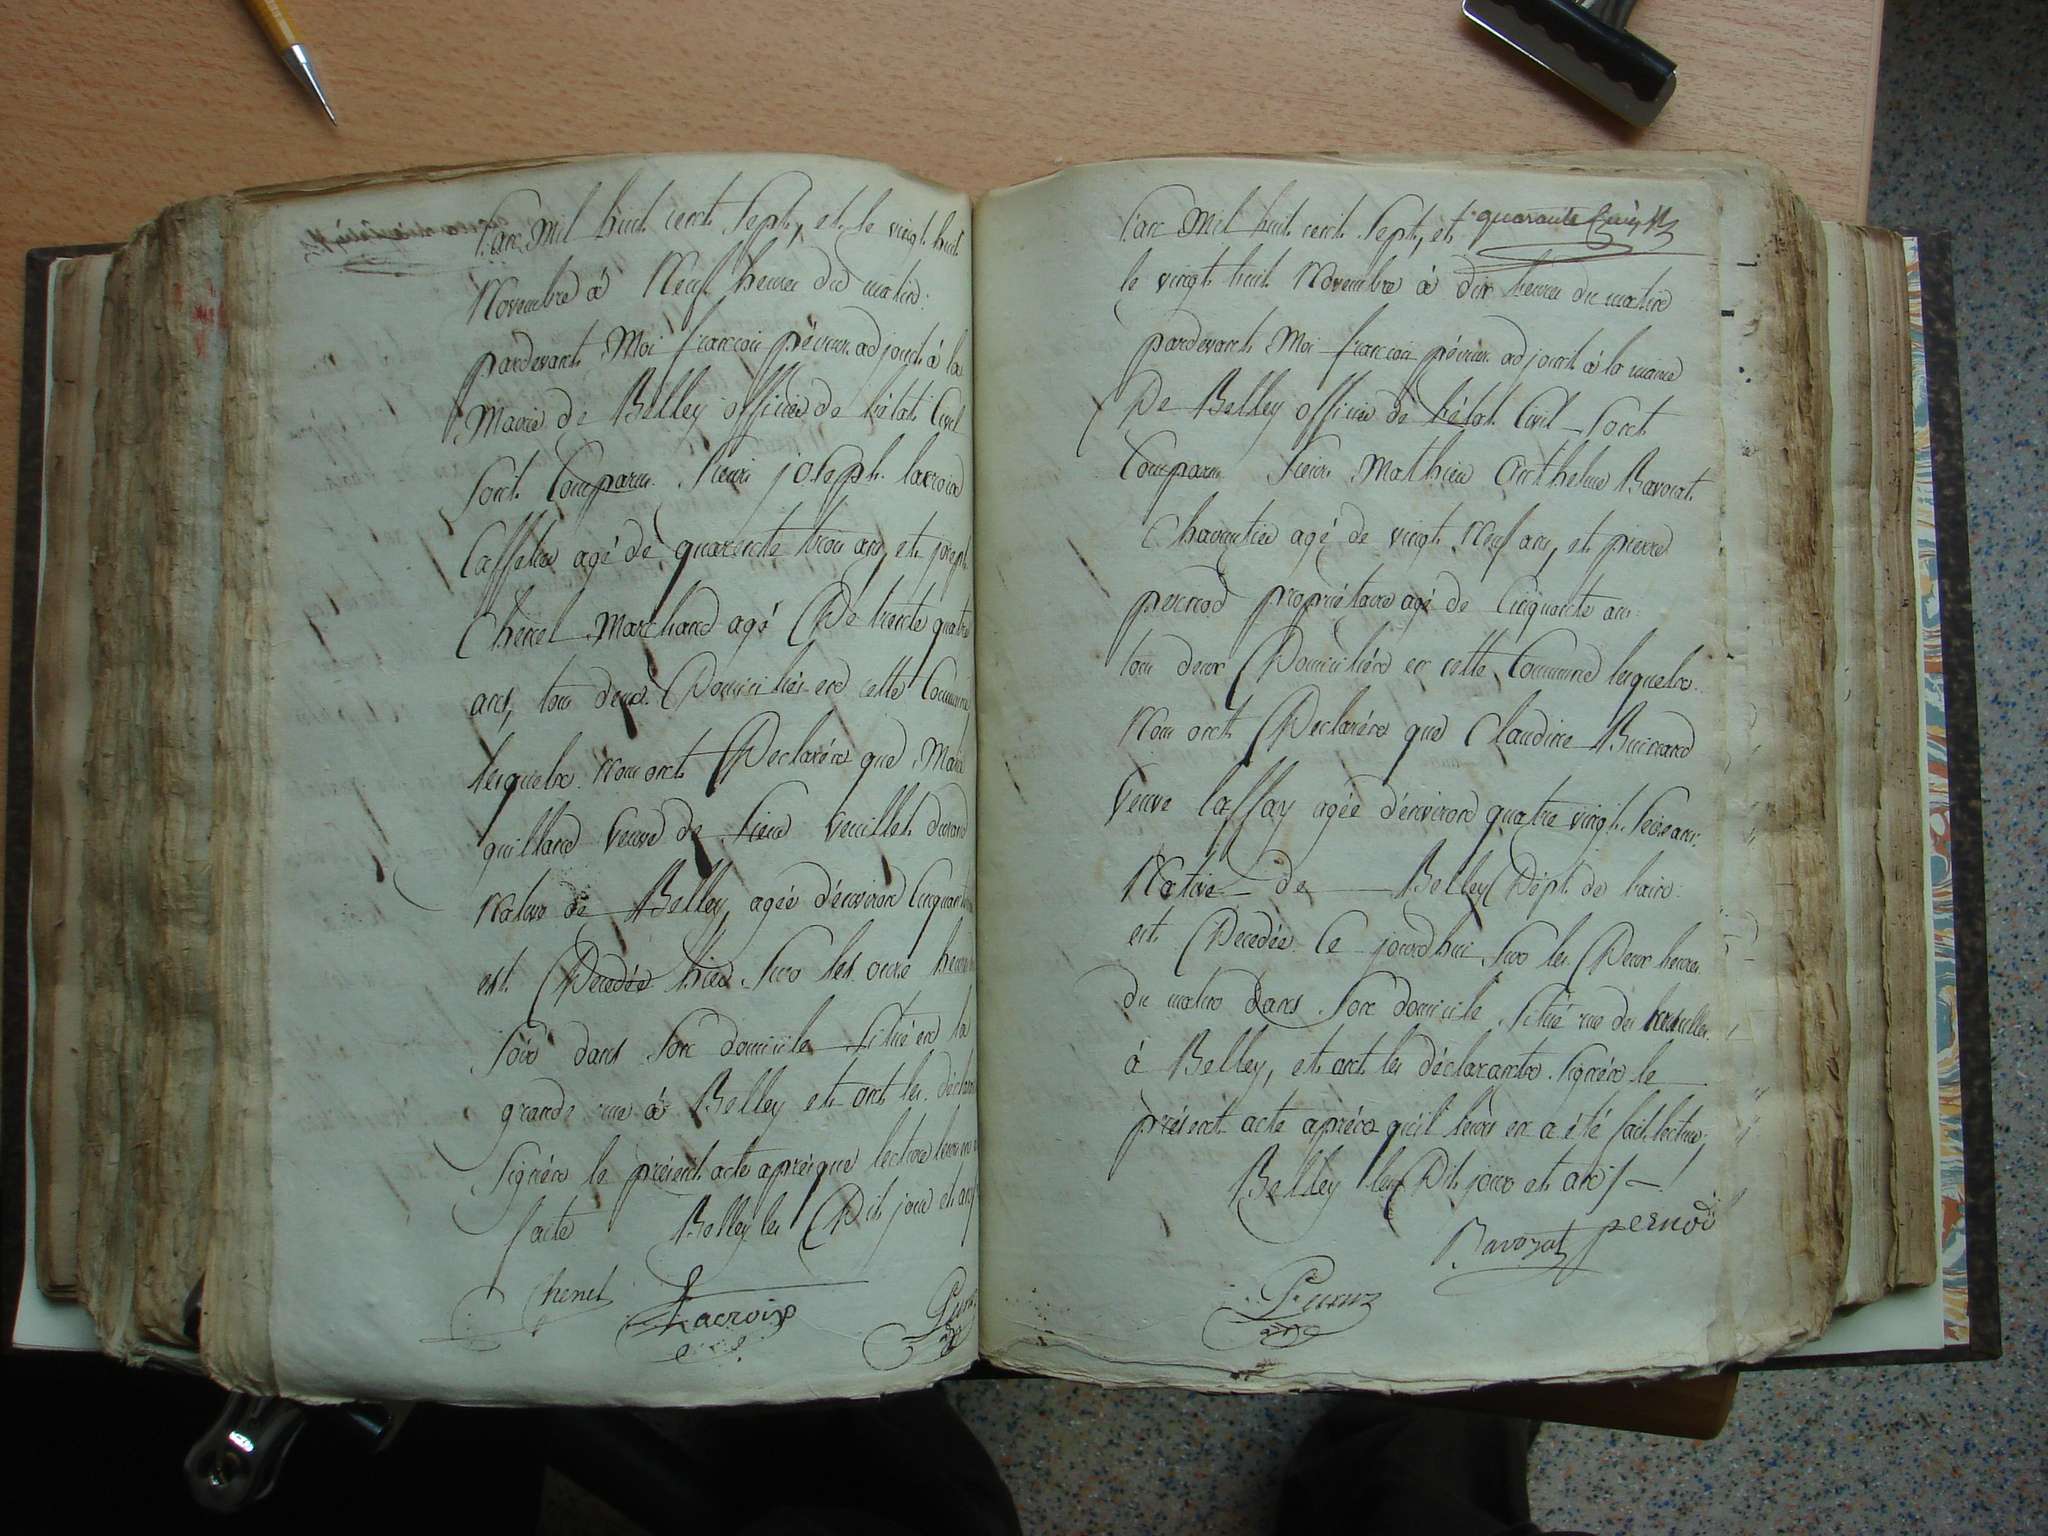 L'an Mil huit cent Sept, et le vingt huit
Novembre à Neuf heures du matin
pardevant Moi françois adjoint à la
Mairie de Belley officier de l'état Civil
Sont Comparus Sieurs joseph lacroix
Caffetier agé de quarente trois ans, et joseph
Chenel Marchand agé De trente quatre
ans, tous deux Domiciliés en cette Commune
lesquels Nous ont Declarés que Marie
quilland Veuve de Sieur durand
Native de Belley, agée d'environ Cinquante
est Decedée hier Sur les onze heures
Soir dans Son domicile Situé en la
grande rue à Belley et ont les
Signés le présent acte après que lecture leur
faite Belley les Dit jour et an
Chenel Lacroix
L'an Mil huit cent Sept, et
quarante
le vingt huit Novembre à dix heures du matin
pardevant Moi françois adjoint à la mairie
De Belley officier de l'état Civil Sont
Comparus Sieurs Mathieu Anthelme Bavozat
agé de vingt Neuf ans, et pierre
pernod propriétaire agé de Cinquante ans
tous deux Domiciliés en cette Commune lesquels
Nous ont Declarés que Claudine
Veuve laffay agée d'environ quatre vingt Seize ans
Native de Belley Dépt. de l'ain
est Decedée Ce jourdhui Sur les Deux heures
du matin dans Son domicile Situé rue des
à Belley, et ont les déclarants Signés le
présent acte après qu'il leurs en a été fait lecture,
Belley les Dit jour et an
Bavozat pernod